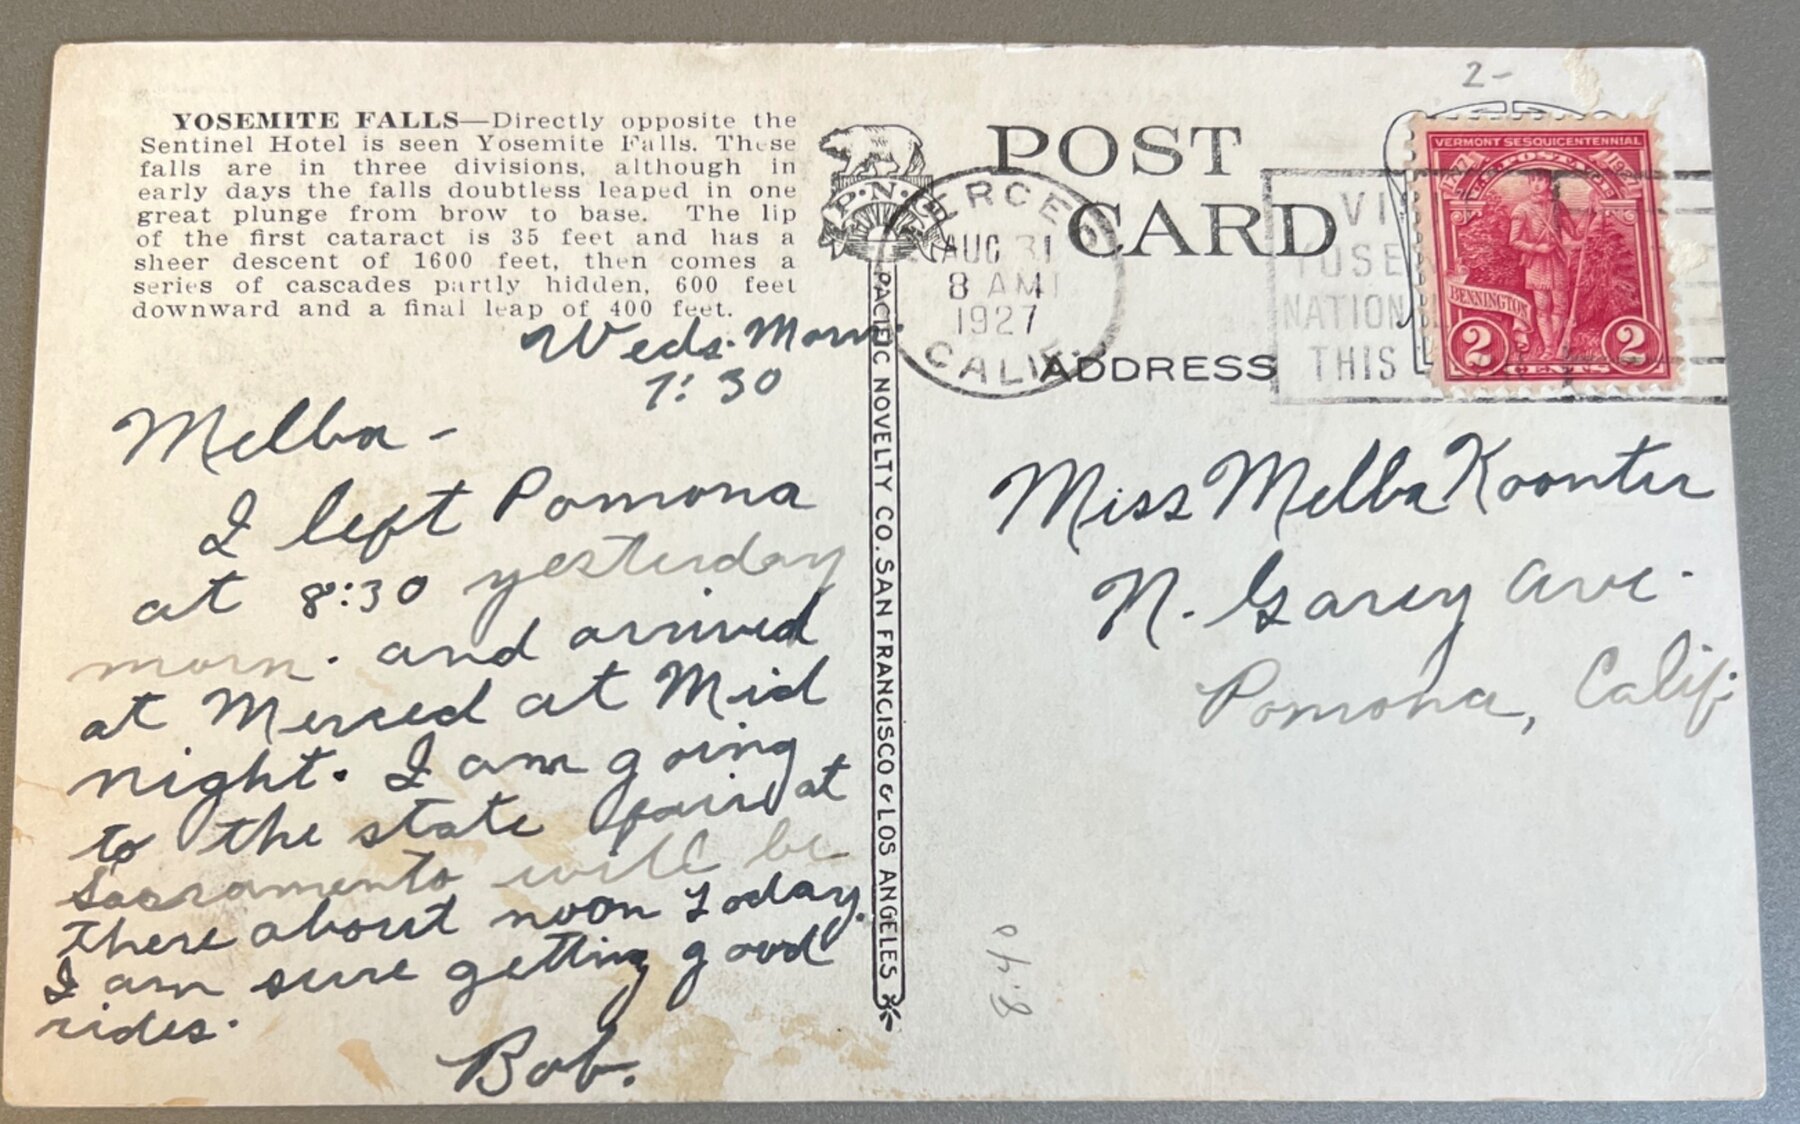 YOSEMITE FALLS—Directly opposite the
Sentinel Hotel is seen Yosemite Falls. These
falls are in three divisions, although in
early days the falls doubtless leaped in one
great plunge from brow to base. The lip
of the first cataract is 35 feet and has a
sheer descent of 1600 feet, then comes a
series of cascades partly hidden, 600 feet
downward and a final leap of 400 feet.
Weds. Morn.
7:30
Melba -
I left Pomona
at 8:30 yesterday
morn. and arrived
at Merced at Mid
night. I am going
to the state faire at
Sacramento will be
there about noon today.
I am sure getting good
rides.
Bob.
P.N.
PACIFIC NOVELTY CO. SAN FRANCISCO & LOS ANGELES
2-
POST
CARD
ADDRESS
MERCED
AUG 31
8 AM
1927
CALIF.
NATION
THIS
VERMONT SESQUICENTENNIAL
1777 U.S. POSTAGE 1927
BENNINGTON
2 CENTS 2
Miss Melba Koonter
N. Garey Ave.
Pomona, Calif.